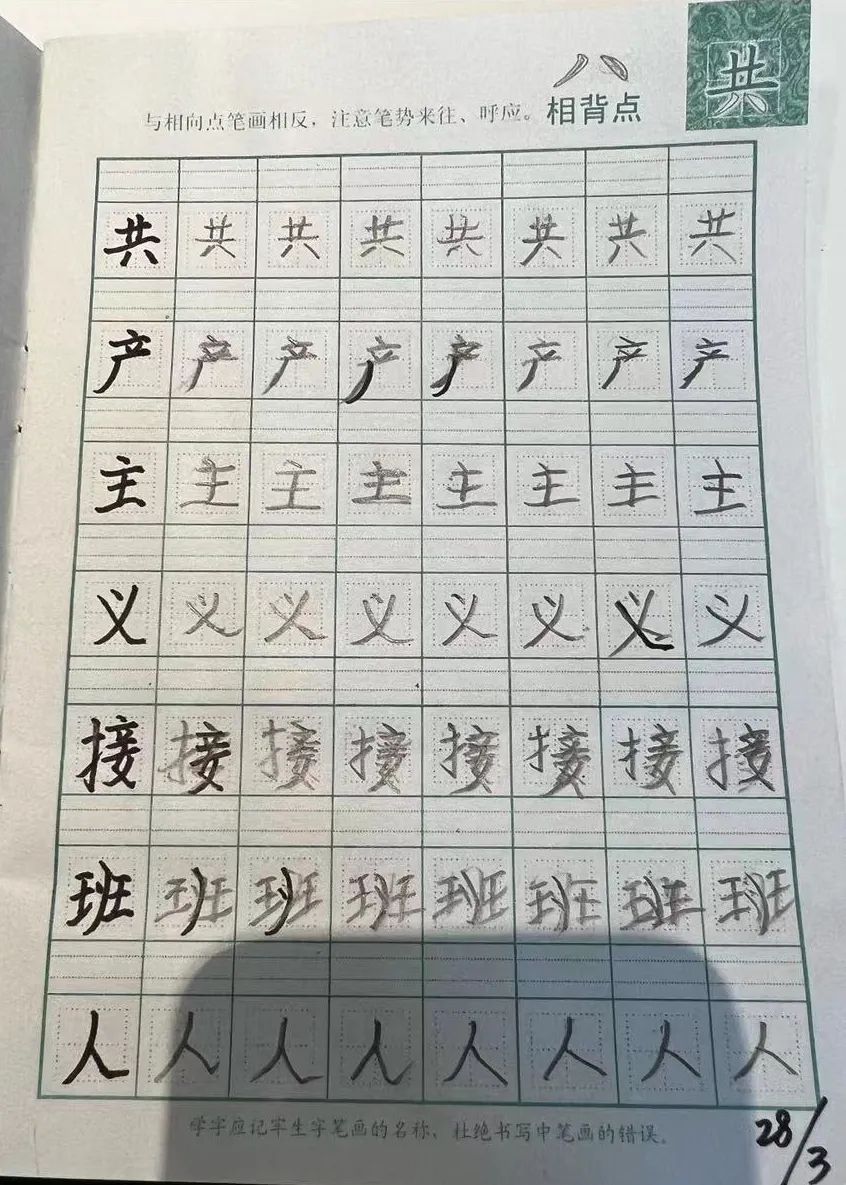 八 共
与相向点笔画相反，注意笔势来往、呼应。相背点
共 共 共 共 共 共 共 共
产 产 产 产 产 产 产 产
主 主 主 主 主 主 主 主
义 义 义 义 义 义 义 义
接 接 接 接 接 接 接 接
班 班 班 班 班 班 班 班
人 人 人 人 人 人 人 人
学字应记牢生字笔画的名称，杜绝书写中笔画的错误。
28/3